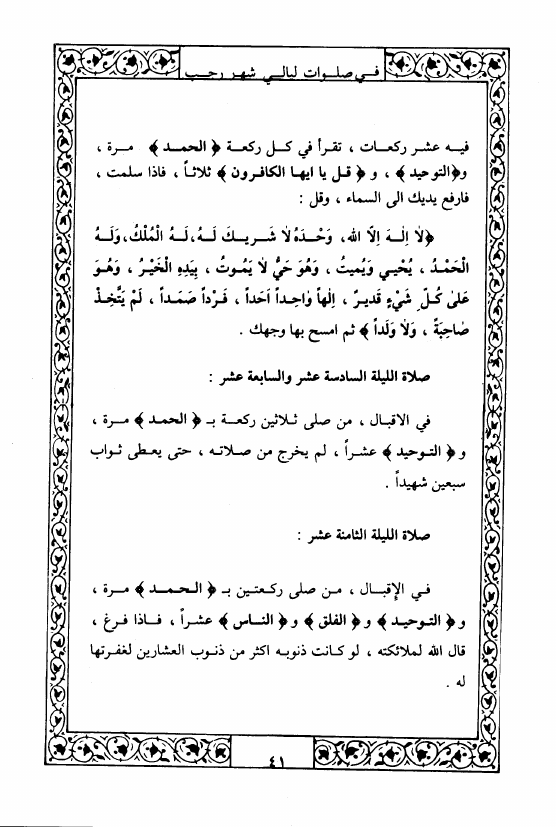 في صلوات ليالي شهر رجب
فيه عشر ركعات ، تقرأ في كل ركعة ﴿ الحمد ﴾ مرة ،
و﴿التوحيد﴾ ، و ﴿ قل يا ايها الكافرون ﴾ ثلاثاً ، فاذا سلمت ،
فارفع يديك الى السماء ، وقل :
﴿لاٰ اِلٰهَ اِلاّ الله، وَحْدَهُ لاٰ شَريكَ لَهُ، لَهُ الْمُلْكُ، وَلَهُ
الْحَمْدُ ، يُحْيي وَيُميتُ ، وَهُوَ حَيٌّ لاٰ يَمُوتُ ، بِيَدِهِ الْخَيْرُ ، وَهُوَ
عَلىٰ كُلِّ شَيْءٍ قَديرٌ ، اِلٰهاً وٰاحِداً اَحَداً ، فَرْداً صَمَداً ، لَمْ يَتَّخِذْ
صٰاحِبَةً ، وَلاٰ وَلَداً ﴾ ثم امسح بها وجهك .
صلاة الليلة السادسة عشر والسابعة عشر :
في الاقبال ، من صلى ثلاثين ركعة بـ ﴿ الحمد ﴾ مرة ،
و ﴿ التوحيد ﴾ عشراً ، لم يخرج من صلاته ، حتى يعطى ثواب
سبعين شهيداً .
صلاة الليلة الثامنة عشر :
في الإقبال ، من صلى ركعتين بـ ﴿ الحمد ﴾ مرة ،
و ﴿ التوحيد ﴾ و ﴿ الفلق ﴾ و﴿ الناس ﴾ عشراً ، فاذا فرغ ،
قال الله لملائكته ، لو كانت ذنوبه اكثر من ذنوب العشارين لغفرتها
له .
٤١